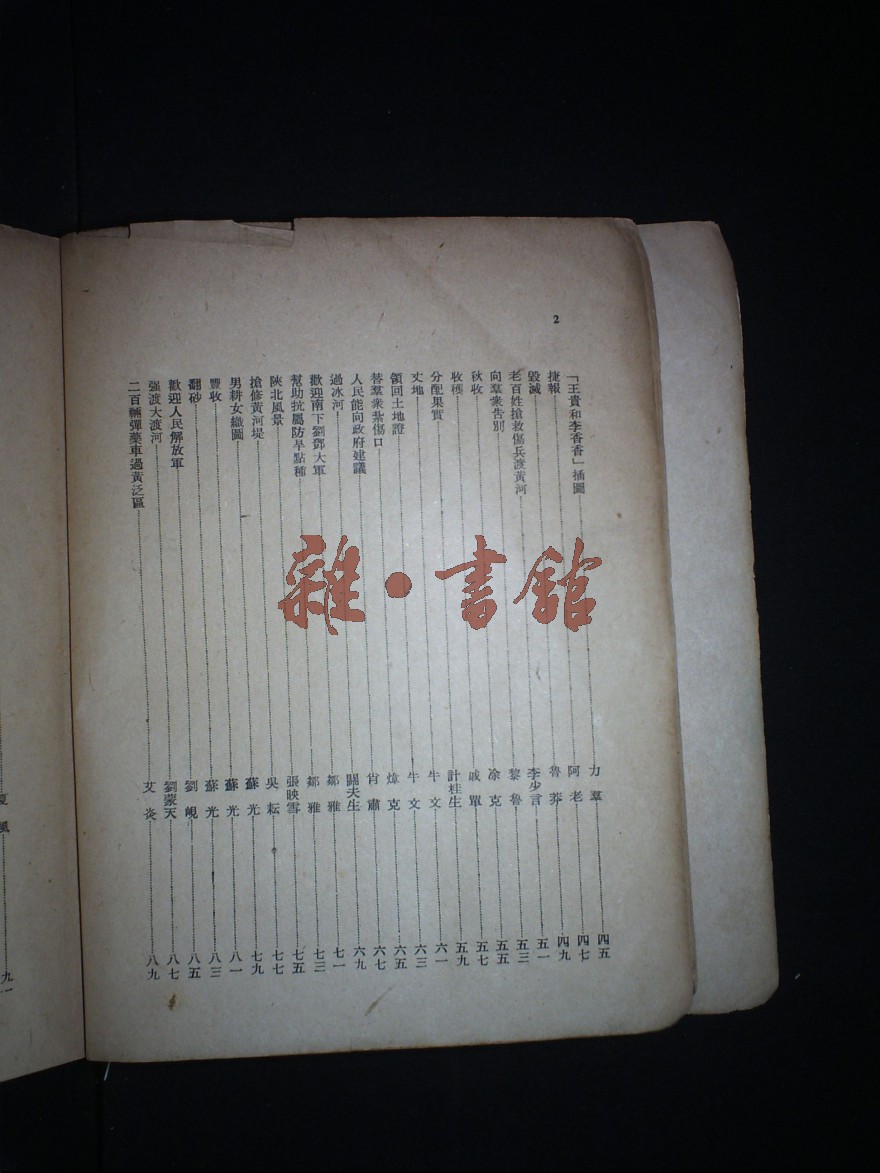 2
「王貴和李香香」插圖 力羣 四五
捷報 阿老 四七
毀滅 魯莽 四九
老百姓搶救傷兵渡黃河 李少言 五一
向羣衆告別 黎魯 五三
秋收 涂克 五五
收穫 戚單 五七
分配果實 計桂生 五九
丈地 牛文 六一
領回土地證 牛文 六三
替羣衆紮傷口 煒克 六五
人民能向政府建議 肖肅 六七
過冰河 關夫生 六九
歡迎南下劉鄧大軍 鄒雅 七一
幫助抗屬防旱點種 鄒雅 七三
陝北風景 張映雪 七五
搶修黃河堤 吳耘 七七
男耕女織圖 蘇光 七九
豐收 蘇光 八一
翻砂 蘇光 八三
歡迎人民解放軍 劉峴 八五
强渡大渡河 劉蒙天 八七
二百輛彈藥車過黃泛區 艾炎 八九
雜·書館